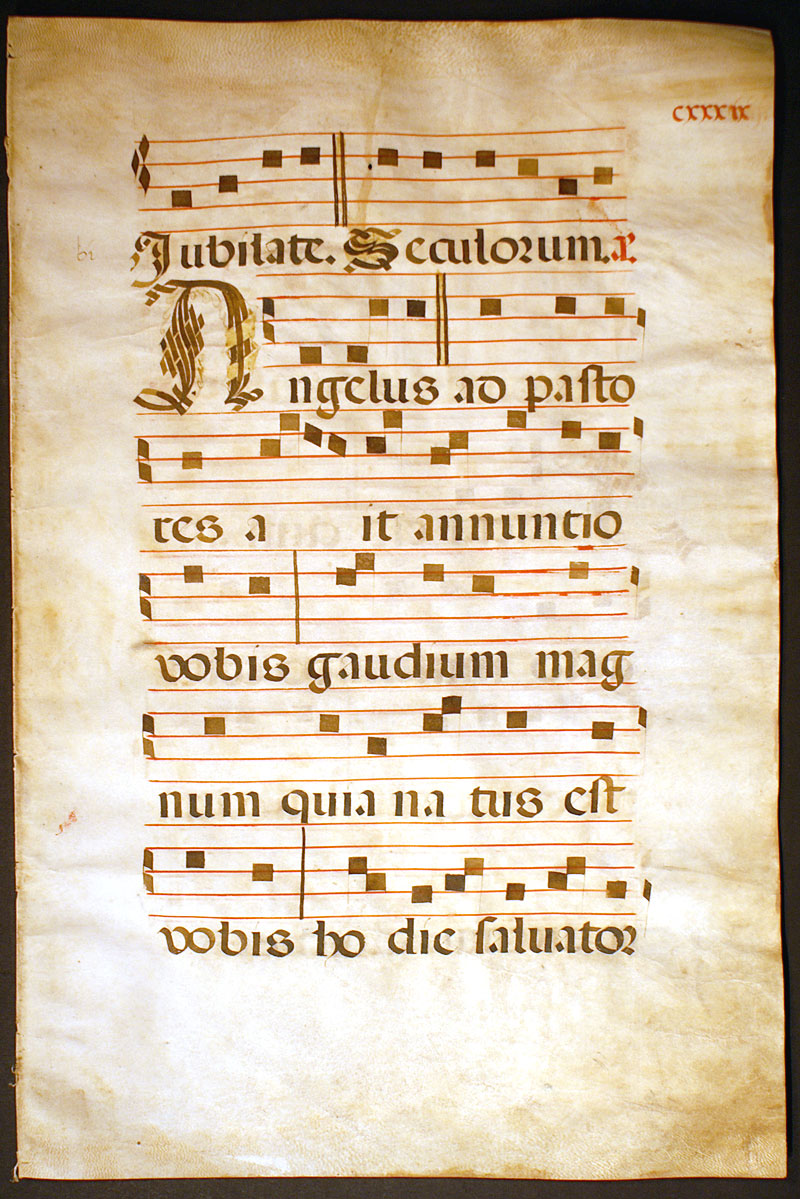 cxxxix
Jubilate. Seculorum. a.
Angelus ad pasto
res a it annuntio
vobis gaudium mag
num quia na tus est
vobis ho die saluator